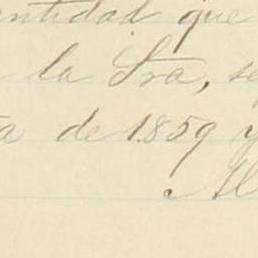 entidad que
la Sra, se
ta de 1859 y
Al